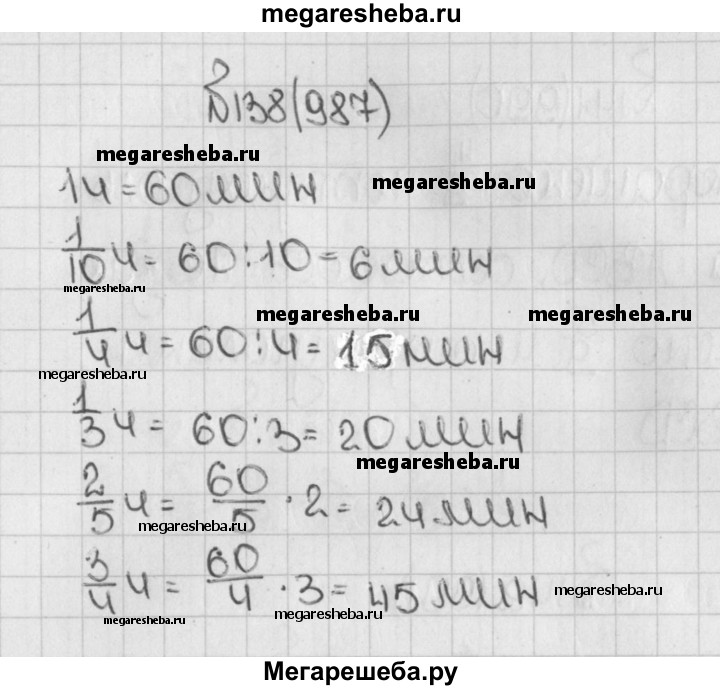 megaresheba.ru
№138(987)
megaresheba.ru
1ч=60мин megaresheba.ru
1/10 ч= 60:10=6мин
megaresheba.ru
megaresheba.ru megaresheba.ru
1/4 ч= 60:4= 15мин
megaresheba.ru
1/3 ч= 60:3= 20мин
megaresheba.ru
2/5 ч= 60/5 · 2= 24мин
megaresheba.ru
3/4 ч= 60/4 · 3= 45мин megaresheba.ru
megaresheba.ru
megaresheba.ru
Мегарешеба.ру